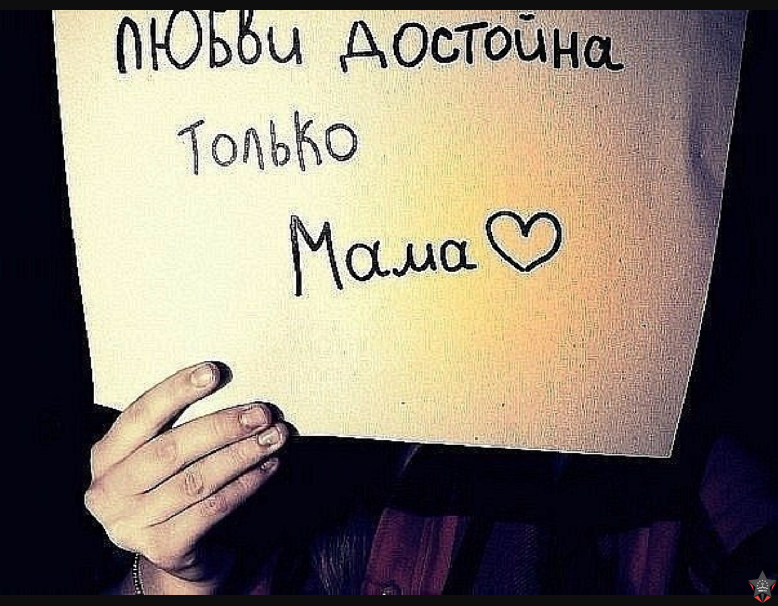 ЛЮБВИ ДОСТОЙНА
ТОЛЬКО
Мама